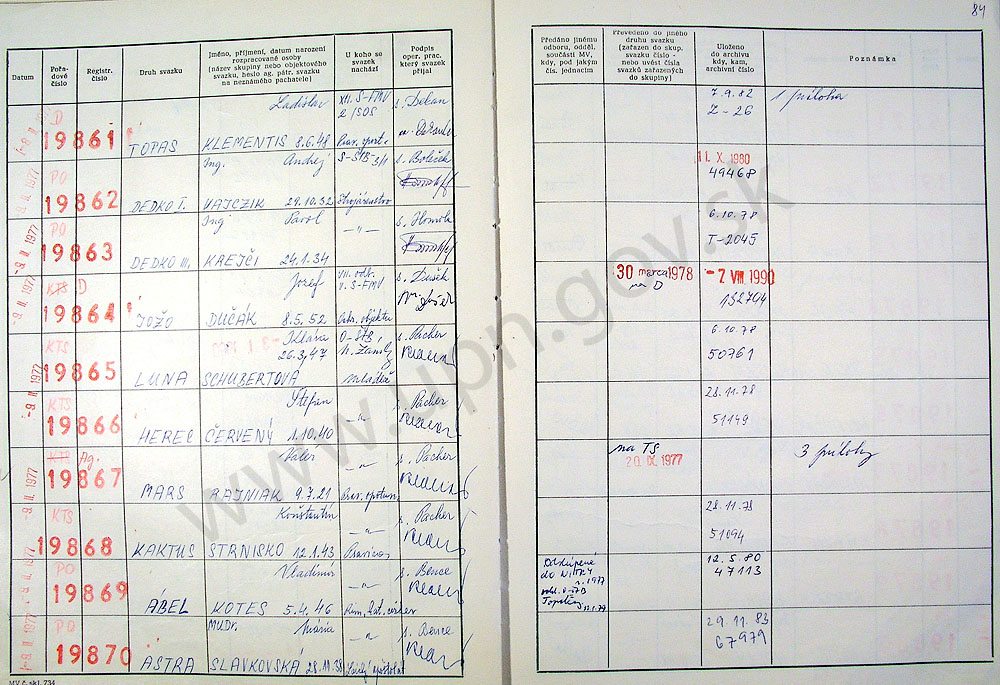 84
Datum
Pořadové číslo
Registr. číslo
Druh svazku
Jméno, příjmení, datum narození rozpracované osoby (název skupiny nebo objektového svazku, heslo ag. pátr. svazku na neznámého pachatele)
U koho se svazek nachází
Podpis oper. prac. který svazek přijal
Předáno jinému odboru, odděl. součásti MV, kdy, pod jakým čís. jednacím
Převedeno do jiného druhu svazku (zařazen do skup. svazku číslo – nebo uvést čísla svazků zařazených do skupiny)
Uloženo do archivu kdy, kam, archivní číslo
Poznámka
D
19861
TOPAS
Ladislav
KLEMENTIS 8.6.48
XII. S-FMV
7.9.82
Z-26
1 príloha
PO
19862
DEDKO I.
Ing. Andrej
VAJCZIK 29.10.32
S-ŠtB 3/1
Strojárenstvo
s. Boleček
11. X. 1980
49468
-9. II. 1977
PO
19863
DEDKO III.
Ing Pavol
KREJČI 24.1.34
-„-
s. Homola
6.10.78
T-2045
-9. II. 1977
KTS D
19864
JOŽO
Jozef
DUČÁK 8.5.52
VII. odb.
Ochr. objektu
s. Dušek
30 marca 1978
na D
-7 VIII. 1990
152704
-9. II. 1977
KTS
19865
LUNA
Klára
26.3.47
SCHUBERTOVÁ
mládež
s. Pacher
6.10.78
50761
-9. II. 1977
KTS
19866
HEREC
Štefan
ČERVENÝ 1.10.40
-„-
s. Pacher
28.11.78
51149
-9. II. 1977
KTS Ag.
19867
MARS
Valer
RAJNIAK 9.7.21
-„-
s. Pacher
na TS
20. IX. 1977
3 prílohy
-9. II. 1977
KTS
19868
KAKTUS
Konštantín
STRNISKO 12.1.43
-„-
Pravica
s. Pacher
28.11.78
51094
PO
19869
ÁBEL
Vladimír
KOTES 5.4.46
-„-
s. Bence
Odstúpené
do NITRY
12.5.80
47113
PO
19870
ASTRA
MUDr. Mária
SLAVKOVSKÁ 28.11.38
-„-
s. Bence
29.11.83
67979
MV č. skl. 734
www.upn.gov.sk